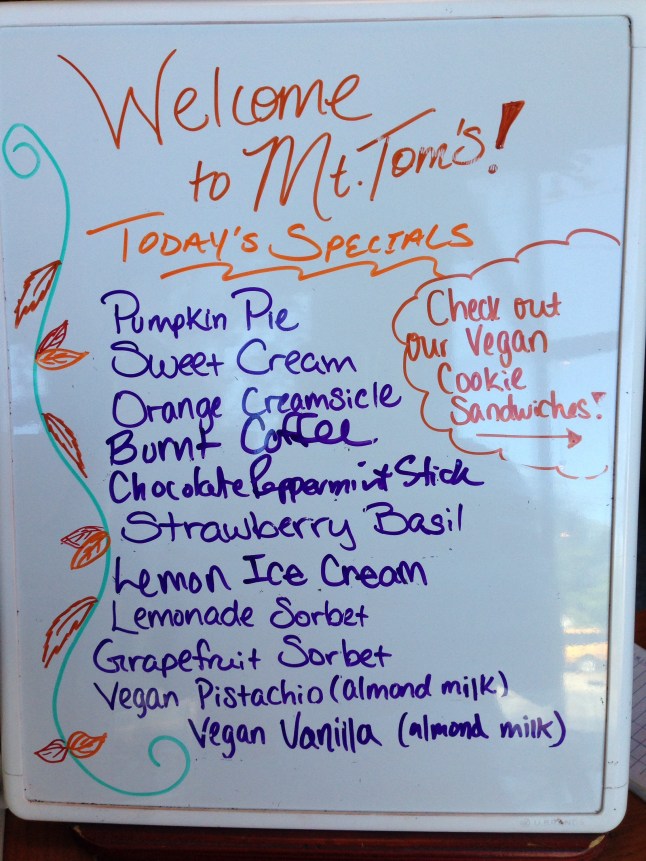 Welcome
to Mt. Tom's!
TODAY'S SPECIALS
Check out
our Vegan
Cookie
Sandwiches!
Pumpkin Pie
Sweet Cream
Orange Creamsicle
Burnt Coffee
Chocolate Peppermint Stick
Strawberry Basil
Lemon Ice Cream
Lemonade Sorbet
Grapefruit Sorbet
Vegan Pistachio (almond milk)
Vegan Vanilla (almond milk)